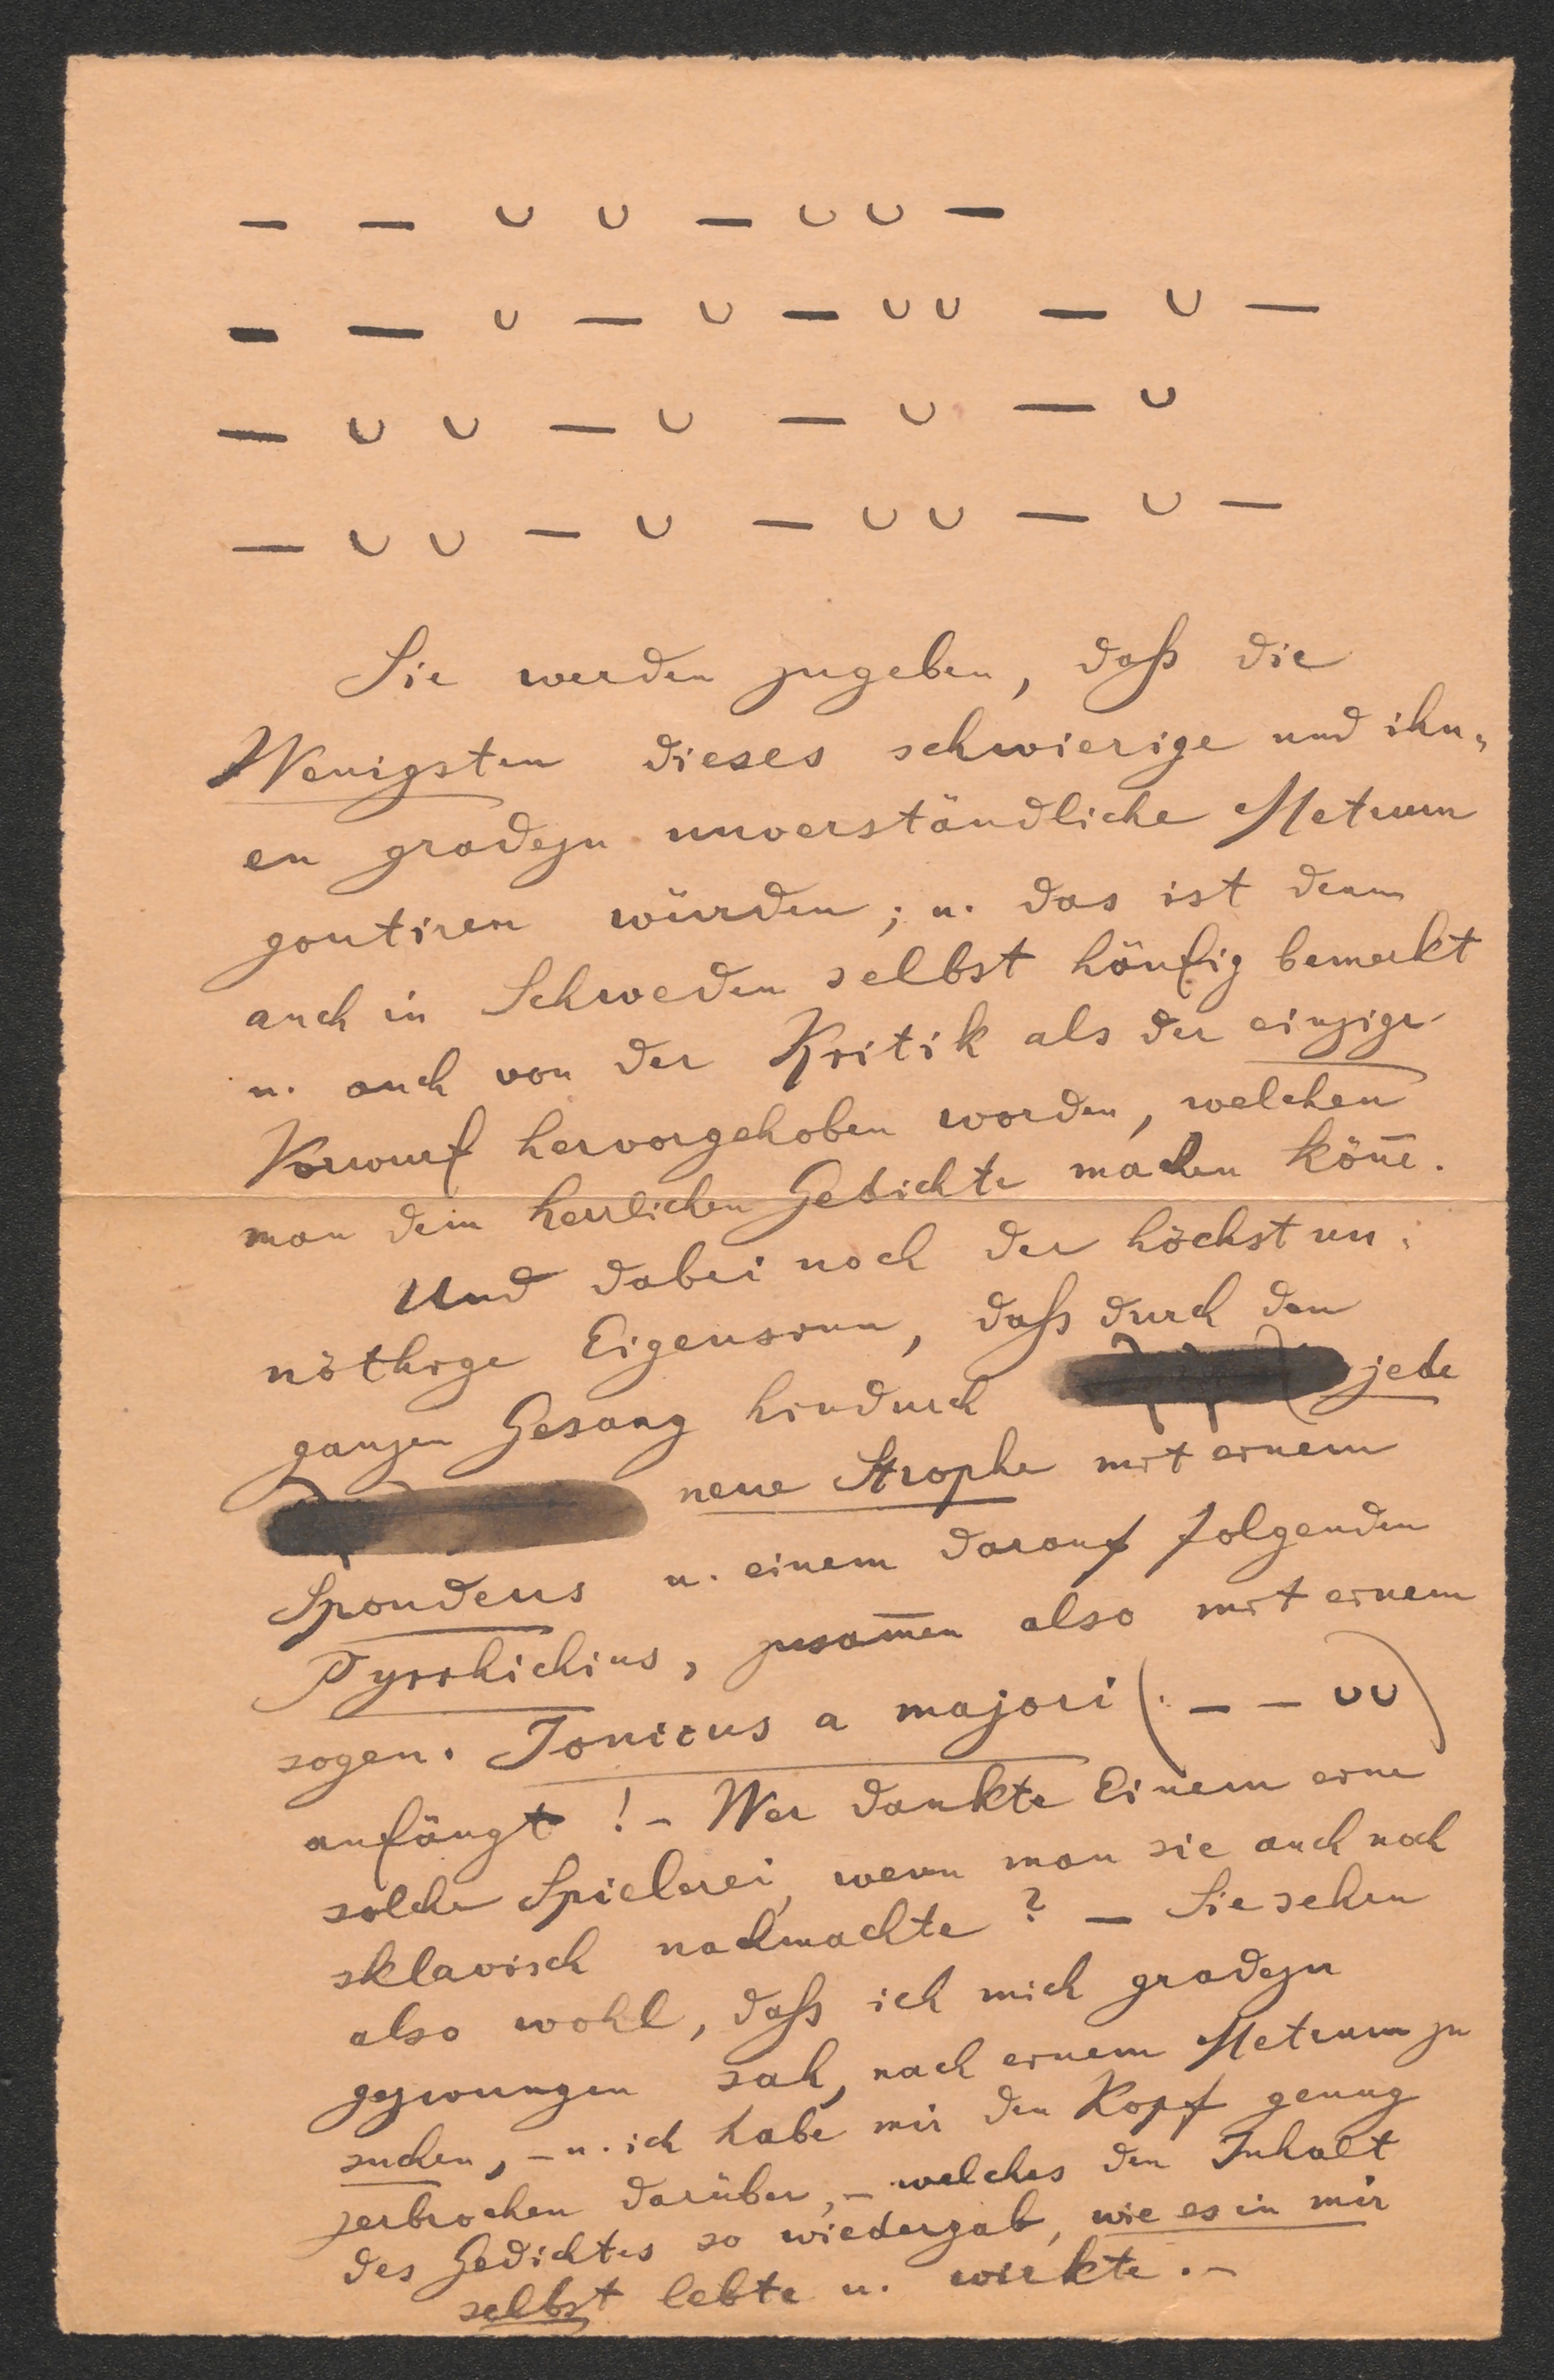 — — ∪ ∪ — ∪ ∪ —
— — ∪ — ∪ — ∪ ∪ — ∪ —
— ∪ ∪ — ∪ — ∪ — ∪
— ∪ ∪ — ∪ — ∪ ∪ — ∪ —
Sie werden zugeben, daß die
Wenigsten dieses schwierige und ihn-
en gradezu unverständliche Metrum
goutiren würden; u. das ist denn
auch in Schweden selbst häufig bemerkt
u. auch von der Kritik als der einzige
Vorwurf hervorgehoben worden, welchen
man dem herrlichen Gedichte machen kön̄e.
Und dabei noch der höchst un-
nöthige Eigensinn, daß durch den
ganzen Gesang hindurch jede
neue Strophe mit einem
Spondeus u. einem darauf folgenden
Pyrrhichius, zusam̄en also mit einem
sogen. Jonicus a majori (: — — ∪∪)
anfängt! – Wer dankte Einem eine
solche Spielerei, wenn man sie auch noch
sklavisch nachmachte? — Sie sehen
also wohl, daß ich mich gradezu
gezwungen sah, nach einem Metrum zu
suchen, – u. ich habe mir den Kopf genug
zerbrochen darüber, – welches den Inhalt
des Gedichtes so wiedergab, wie es in mir
selbst lebte u. wirkte. –